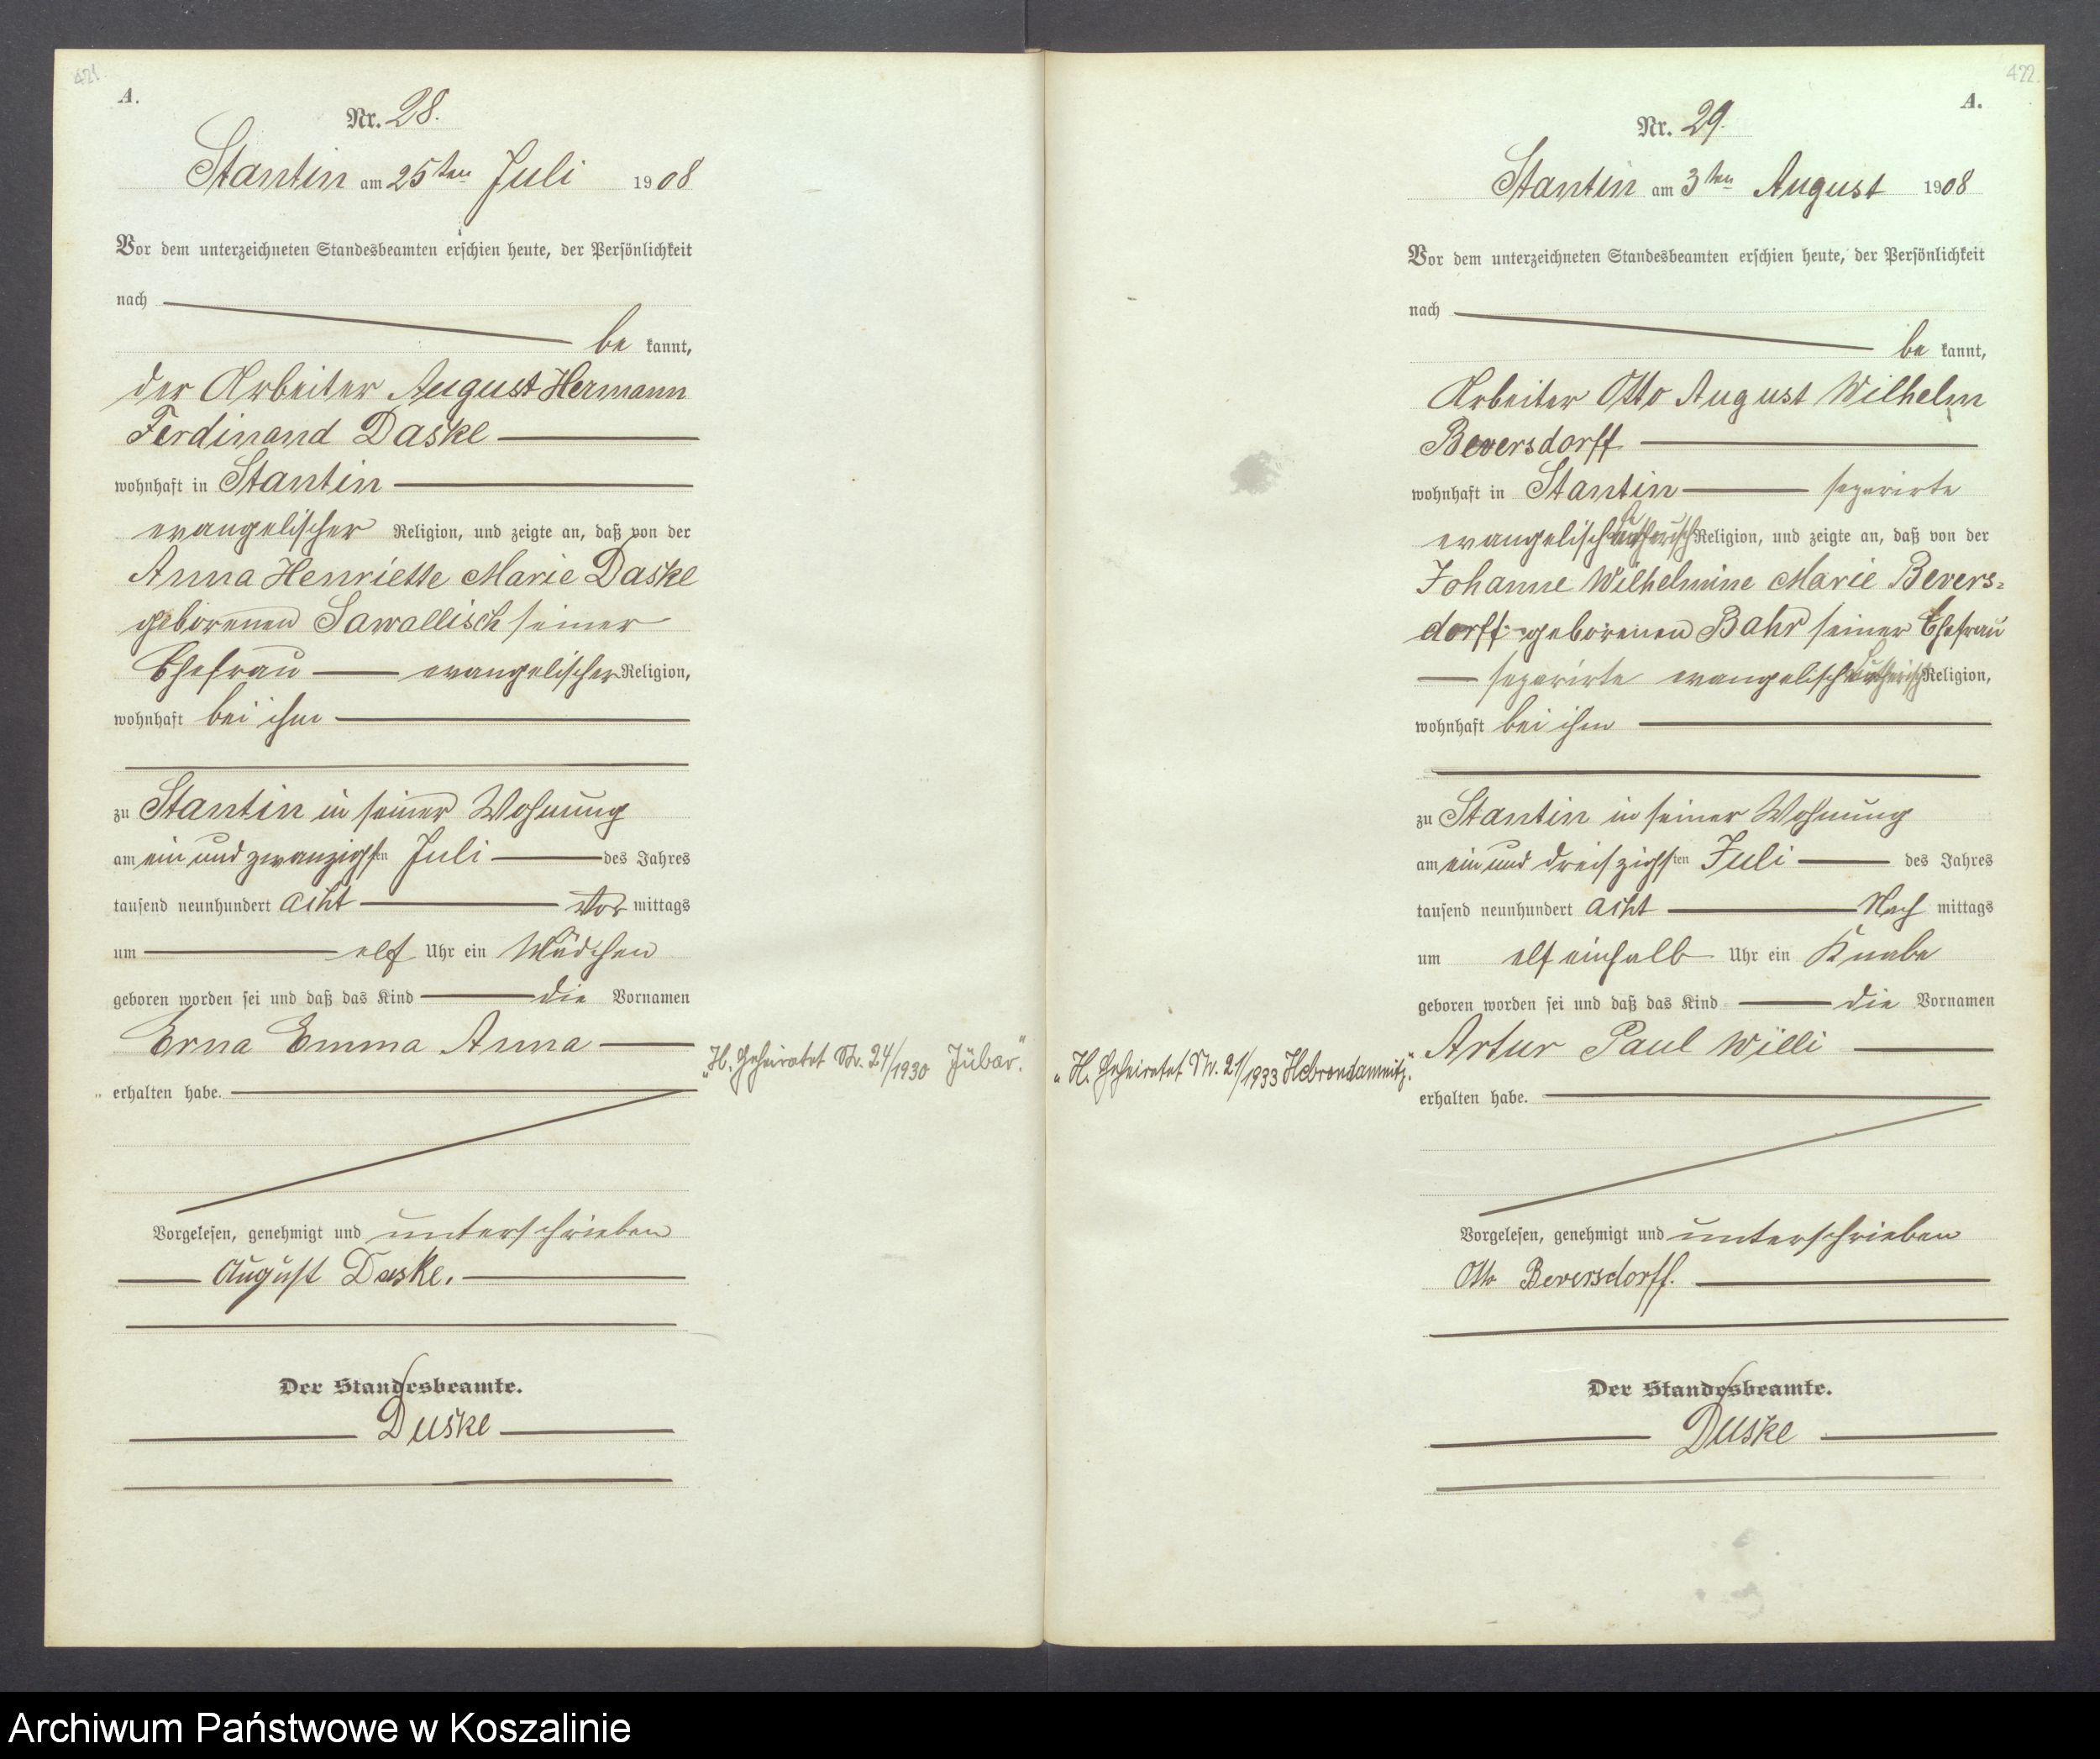 421.
A.
Nr. 28.
Stantin am 25ten Juli 1908
Vor dem unterzeichneten Standesbeamten erschien heute, der Persönlichkeit
nach
be kannt,
der Arbeiter August Hermann
Ferdinand Daske
wohnhaft in Stantin
evangelischer Religion, und zeigte an, daß von der
Anna Henriette Marie Daske
geborenen Sawallisch seiner
Ehefrau evangelischer Religion,
wohnhaft bei ihm
zu Stantin in seiner Wohnung
am ein und zwanzigsten Juli des Jahres
tausend neunhundert acht Vor mittags
um elf Uhr ein Mädchen
geboren worden sei und daß das Kind die Vornamen
Erna Emma Anna
erhalten habe.
„H. Geheiratet Nr. 24/1930 Jübar."
Vorgelesen, genehmigt und unterschrieben
August Daske.
Der Standesbeamte.
Duske
422.
A.
Nr. 29.
Stantin am 3ten August 1908
Vor dem unterzeichneten Standesbeamten erschien heute, der Persönlichkeit
nach
be kannt,
Arbeiter Otto August Wilhelm
Beversdorff
wohnhaft in Stantin separirte
evangelisch lutherisch Religion, und zeigte an, daß von der
Johanne Wilhelmine Marie Bevers=
dorff geborenen Bahr seiner Ehefrau
separirte evangelisch lutherisch Religion,
wohnhaft bei ihm
zu Stantin in seiner Wohnung
am ein und dreiszigsten Juli des Jahres
tausend neunhundert acht Nach mittags
um elf einhalb Uhr ein Knabe
geboren worden sei und daß das Kind die Vornamen
Artur Paul Willi
„H. Geheiratet Nr. 21/1933 Hebrondamnitz."
erhalten habe.
Vorgelesen, genehmigt und unterschrieben
Otto Beversdorff.
Der Standesbeamte.
Duske
Archiwum Państwowe w Koszalinie